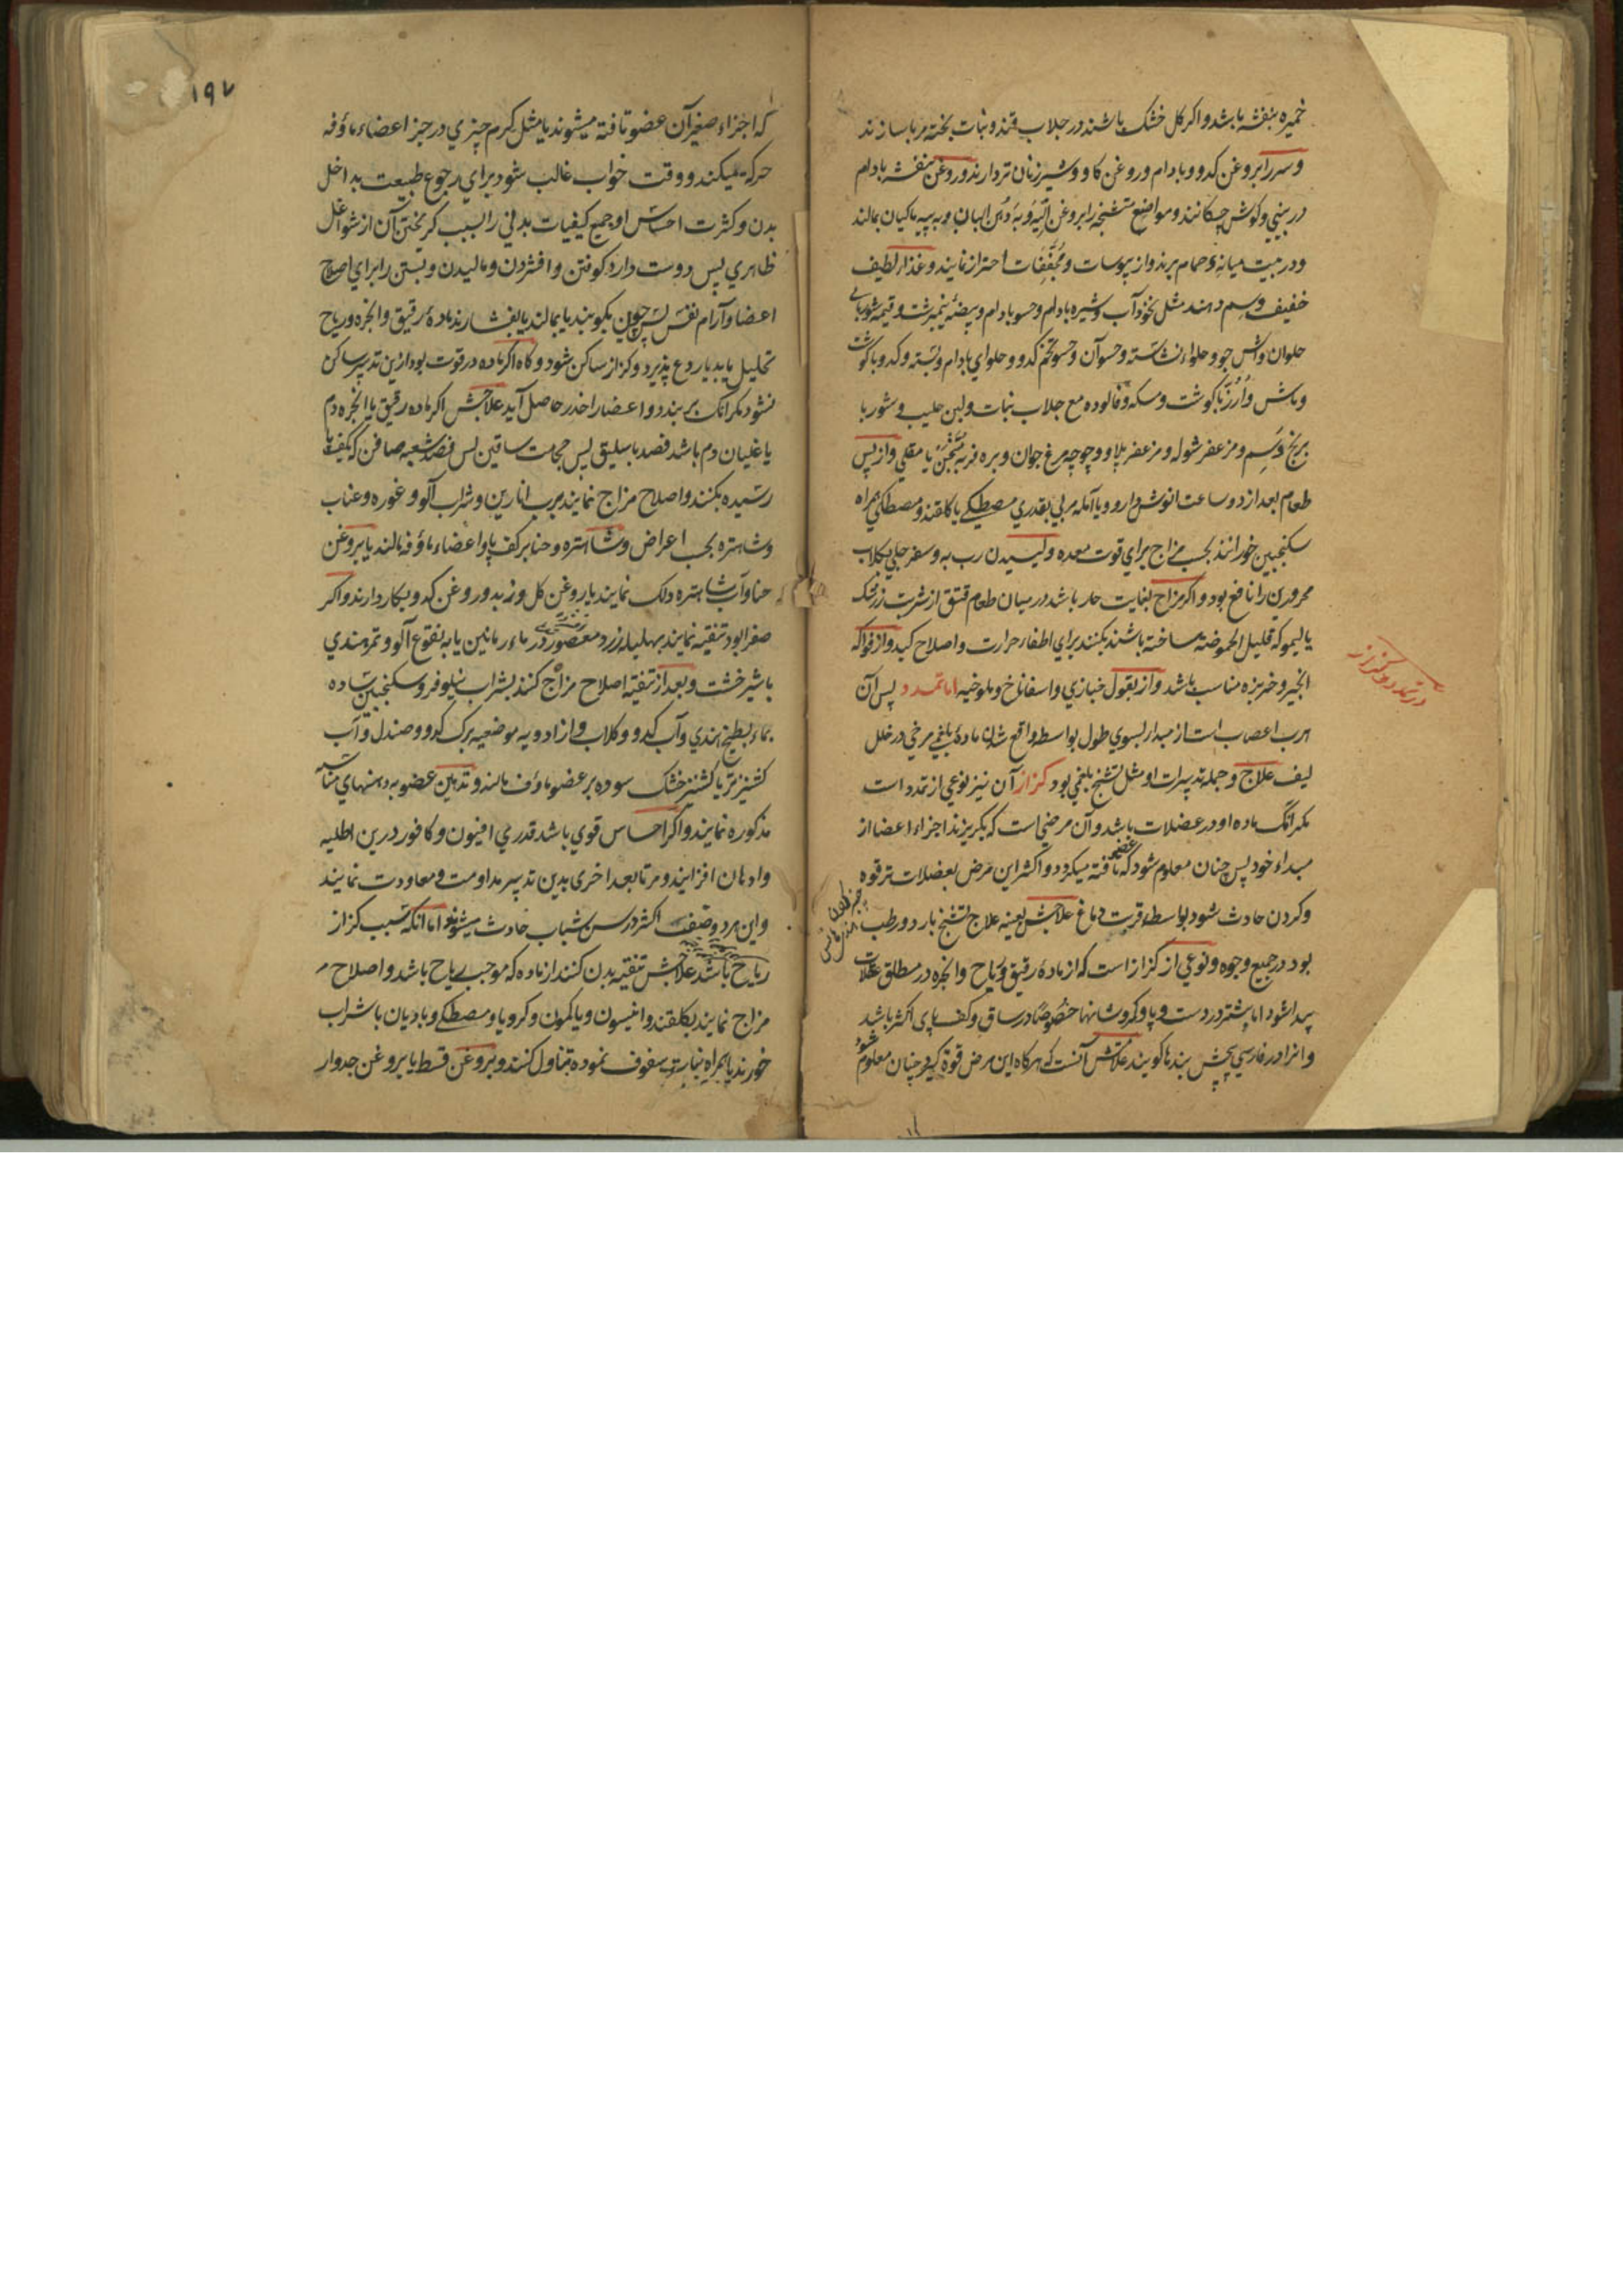 خمیره بنفشه باشد و اکر کل خشک باشند در جلاب قند و نبات پخته مربا سازند
و سر را بروغن کدو و بادام و روغن کاو و شیر زنان تر دارند و روغن بنفشه بادام
در بینی و کوش چکانند و مواضع متشنجه را بروغن الیه و به دهن البان و به پیه ماکیان بمالند
و در بیت میانه حمام برند و از یبوسات و مجففات احتراز نمایند و غذاء لطیف
خفیف دسم دهند مثل نخوداب و شیره بادام و حسو بادام و بیضه نیمبرشت و قیمه شوربای
حلوان و آش جو و حلواء نشاسته و حسو آن و حسو تخم کدو و حلوای بادام و پسته و کدو با کوشت
و ماش و ارز با کوشت و مسکه و فالوده مع جلاب نبات و لبن حلیب و شوربا
برنج دسم و مزعفر شوله و مزعفر پلاو و چوچه مرغ جوان و بره فربه یا مقلی و از پس
طعام بعد از دو ساعت انوش دارو و یا آمله مربی بقدری مصطکی یا کلقند و مصطکی همراه
سکنجبین خورانند بحسب مزاج برای قوت معده و لیسیدن رب به و سفرجلی بکلاب
محرورین را نافع بود و اکر مزاج بغایت حار باشد در میان طعام قتق از شربت زرشک
یا لیمو که قلیل الحموضه ساخته باشند بکنند برای اطفاء حرارت و اصلاح کبد و از فواکه
انجیر و خربزه مناسب باشد و از بقول خبازی و اسفاناخ و ملوخیه اما تمدد پس آن
هرب اعصاب است از مبدا بسوی طول بواسطه واقع شدن ماده بلغمی مرخی در خلل
لیف علاج و جمله تدبیرات او مثل تشنج بلغمی بود کزاز آن نیز نوعی از تمدد است
مکر انک ماده او در عضلات باشد و آن مرضی است که بکریزند اجزاء اعضا از
مبداء خود پس چنان معلوم شود که عضو تافته میکردد و اکثر این مرض بعضلات ترقوه
و کردن حادث شود بواسطه قربت دماغ علاجش بعینه علاج تشنج بارد و رطب
بود در جمیع وجوه و نوعی از کزاز است که از ماده رقیق و ریاح و ابخره در مطلق عضلات
پیدا شود اما بیشتر در دست و پا و کمر و شانها خصوصا در ساق و کف پای اکثر باشد
و انرا در فارسی پیچش بندها کویند علامتش آنست که هرکاه این مرض قوة کیرد چنان معلوم شود
در تمدد و کزاز
۱۹۷
که اجزاء صغیر آن عضو تافته میشوند یا مثل کرم چیزی در حیز اعضاء ماؤفه
حرکت میکند و وقت خواب غالب شود برای رجوع طبیعت بداخل
بدن و کثرت احساس او جمیع کیفیات بدنی را بسبب کریختن آن از شواغل
ظاهری پس دوست دارد کوفتن و افشردن و مالیدن و بستن را برای اصلاح
اعضا و آرام نفس پس چون بکوبند یا بمالند یا بفشارند ماده رقیق و ابخره و ریاح
تحلیل یابد یا ردع پذیرد و کزاز ساکن شود و کاه اکر ماده در قوت بود ازین تدبیر ساکن
نشود مکر انک بربندد و اعضا را خدر حاصل آید علاجش اکر ماده رقیق یا ابخره دم
یا غلیان دم باشد فصد باسلیق پس حجامت ساقین پس فصد شعبه صافن که بکف پا
رسیده بکنند و اصلاح مزاج نمایند برب انارین و شراب آلو و غوره و عناب
و شاهتره بحسب اعراض و شاهتره و حنا بر کف پا و اعضاء ماؤفه مالند یا بروغن
حنا و آب شاهتره دلک نمایند یا روغن کل و زبد و روغن کدو بکار دارند و اکر
صفرا بود تنقیه نمایند بهلیله زرد معصور در ماء رمانین یا به نقوع آلو و تمر هندی
با شیرخشت و بعد از تنقیه اصلاح مزاج کنند بشراب نیلوفر و سکنجبین ساده
بماء بطیخ هندی و آب کدو و کلاب و از ادویه موضعیه برک کدو و صندل و آب
کشنیز تر یا کشنیز خشک سوده بر عضو ماؤف مالند و تدهین عضو به دهنهای مناسبه
مذکوره نمایند و اکر احساس قوی باشد قدری افیون و کافور درین اطلیه
و ادهان افزایند و مرة بعد اخری بدین تدبیر مداومت و معاودت نمایند
و این هر دو صنف اکثر در سن شباب حادث میشوند اما انکه سبب کزاز
ریاح باشد علاجش تنقیه بدن کنند از ماده که موجب ریاح باشد و اصلاح
مزاج نمایند بکلقند و انیسون و یا کمون و کرویا و مصطکی و بادیان با شراب
خورند یا همراه نبات سفوف نموده تناول کنند و بروغن قسط یا بروغن جدوار